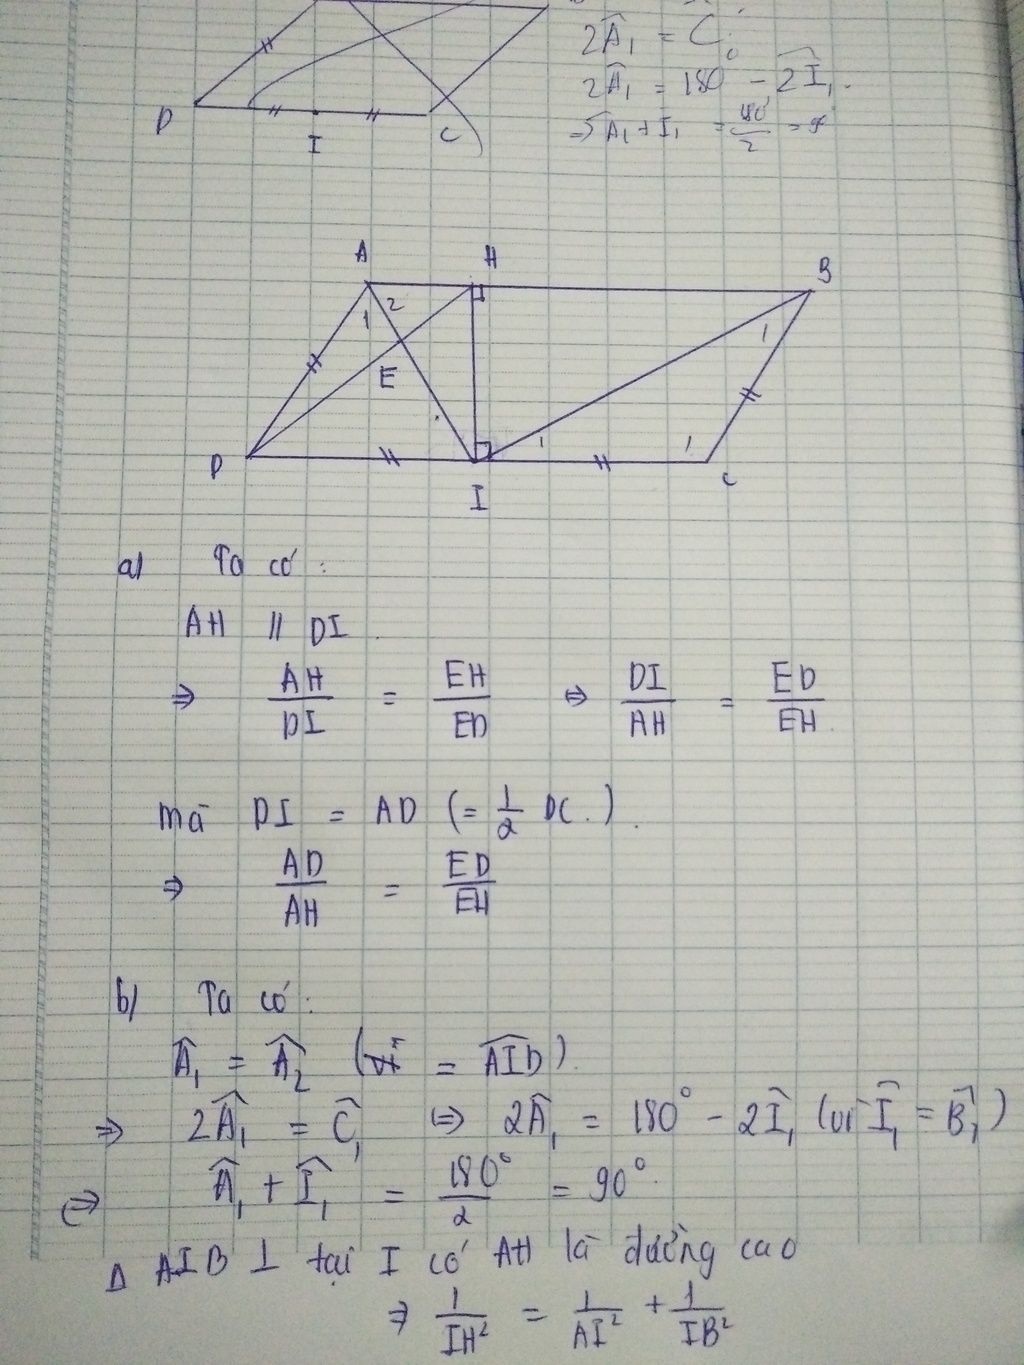 2Â₁ = Ĉ.
2Â₁ = 180° - 2Î₁.
⇒ Â₁ + I₁ = 180°/2 =
D
I
C
A
H
B
2
1
1
E
1
1
D
I
C
a) Ta có:
AH // DI.
⇒ AH/DI = EH/ED ⇔ DI/AH = ED/EH.
mà DI = AD (= 1/2 DC.).
⇒ AD/AH = ED/EH
b) Ta có:
Â₁ = Â₂ ( = \widehat{AID}).
⇒ 2Â₁ = Ĉ₁ ⇔ 2Â₁ = 180° - 2Î₁ (vì Î₁ = B̂₁)
⇔ Â₁ + Î₁ = 180°/2 = 90°.
Δ AIB ⊥ tại I có AH là đường cao
⇒ 1/IH² = 1/AI² + 1/IB²